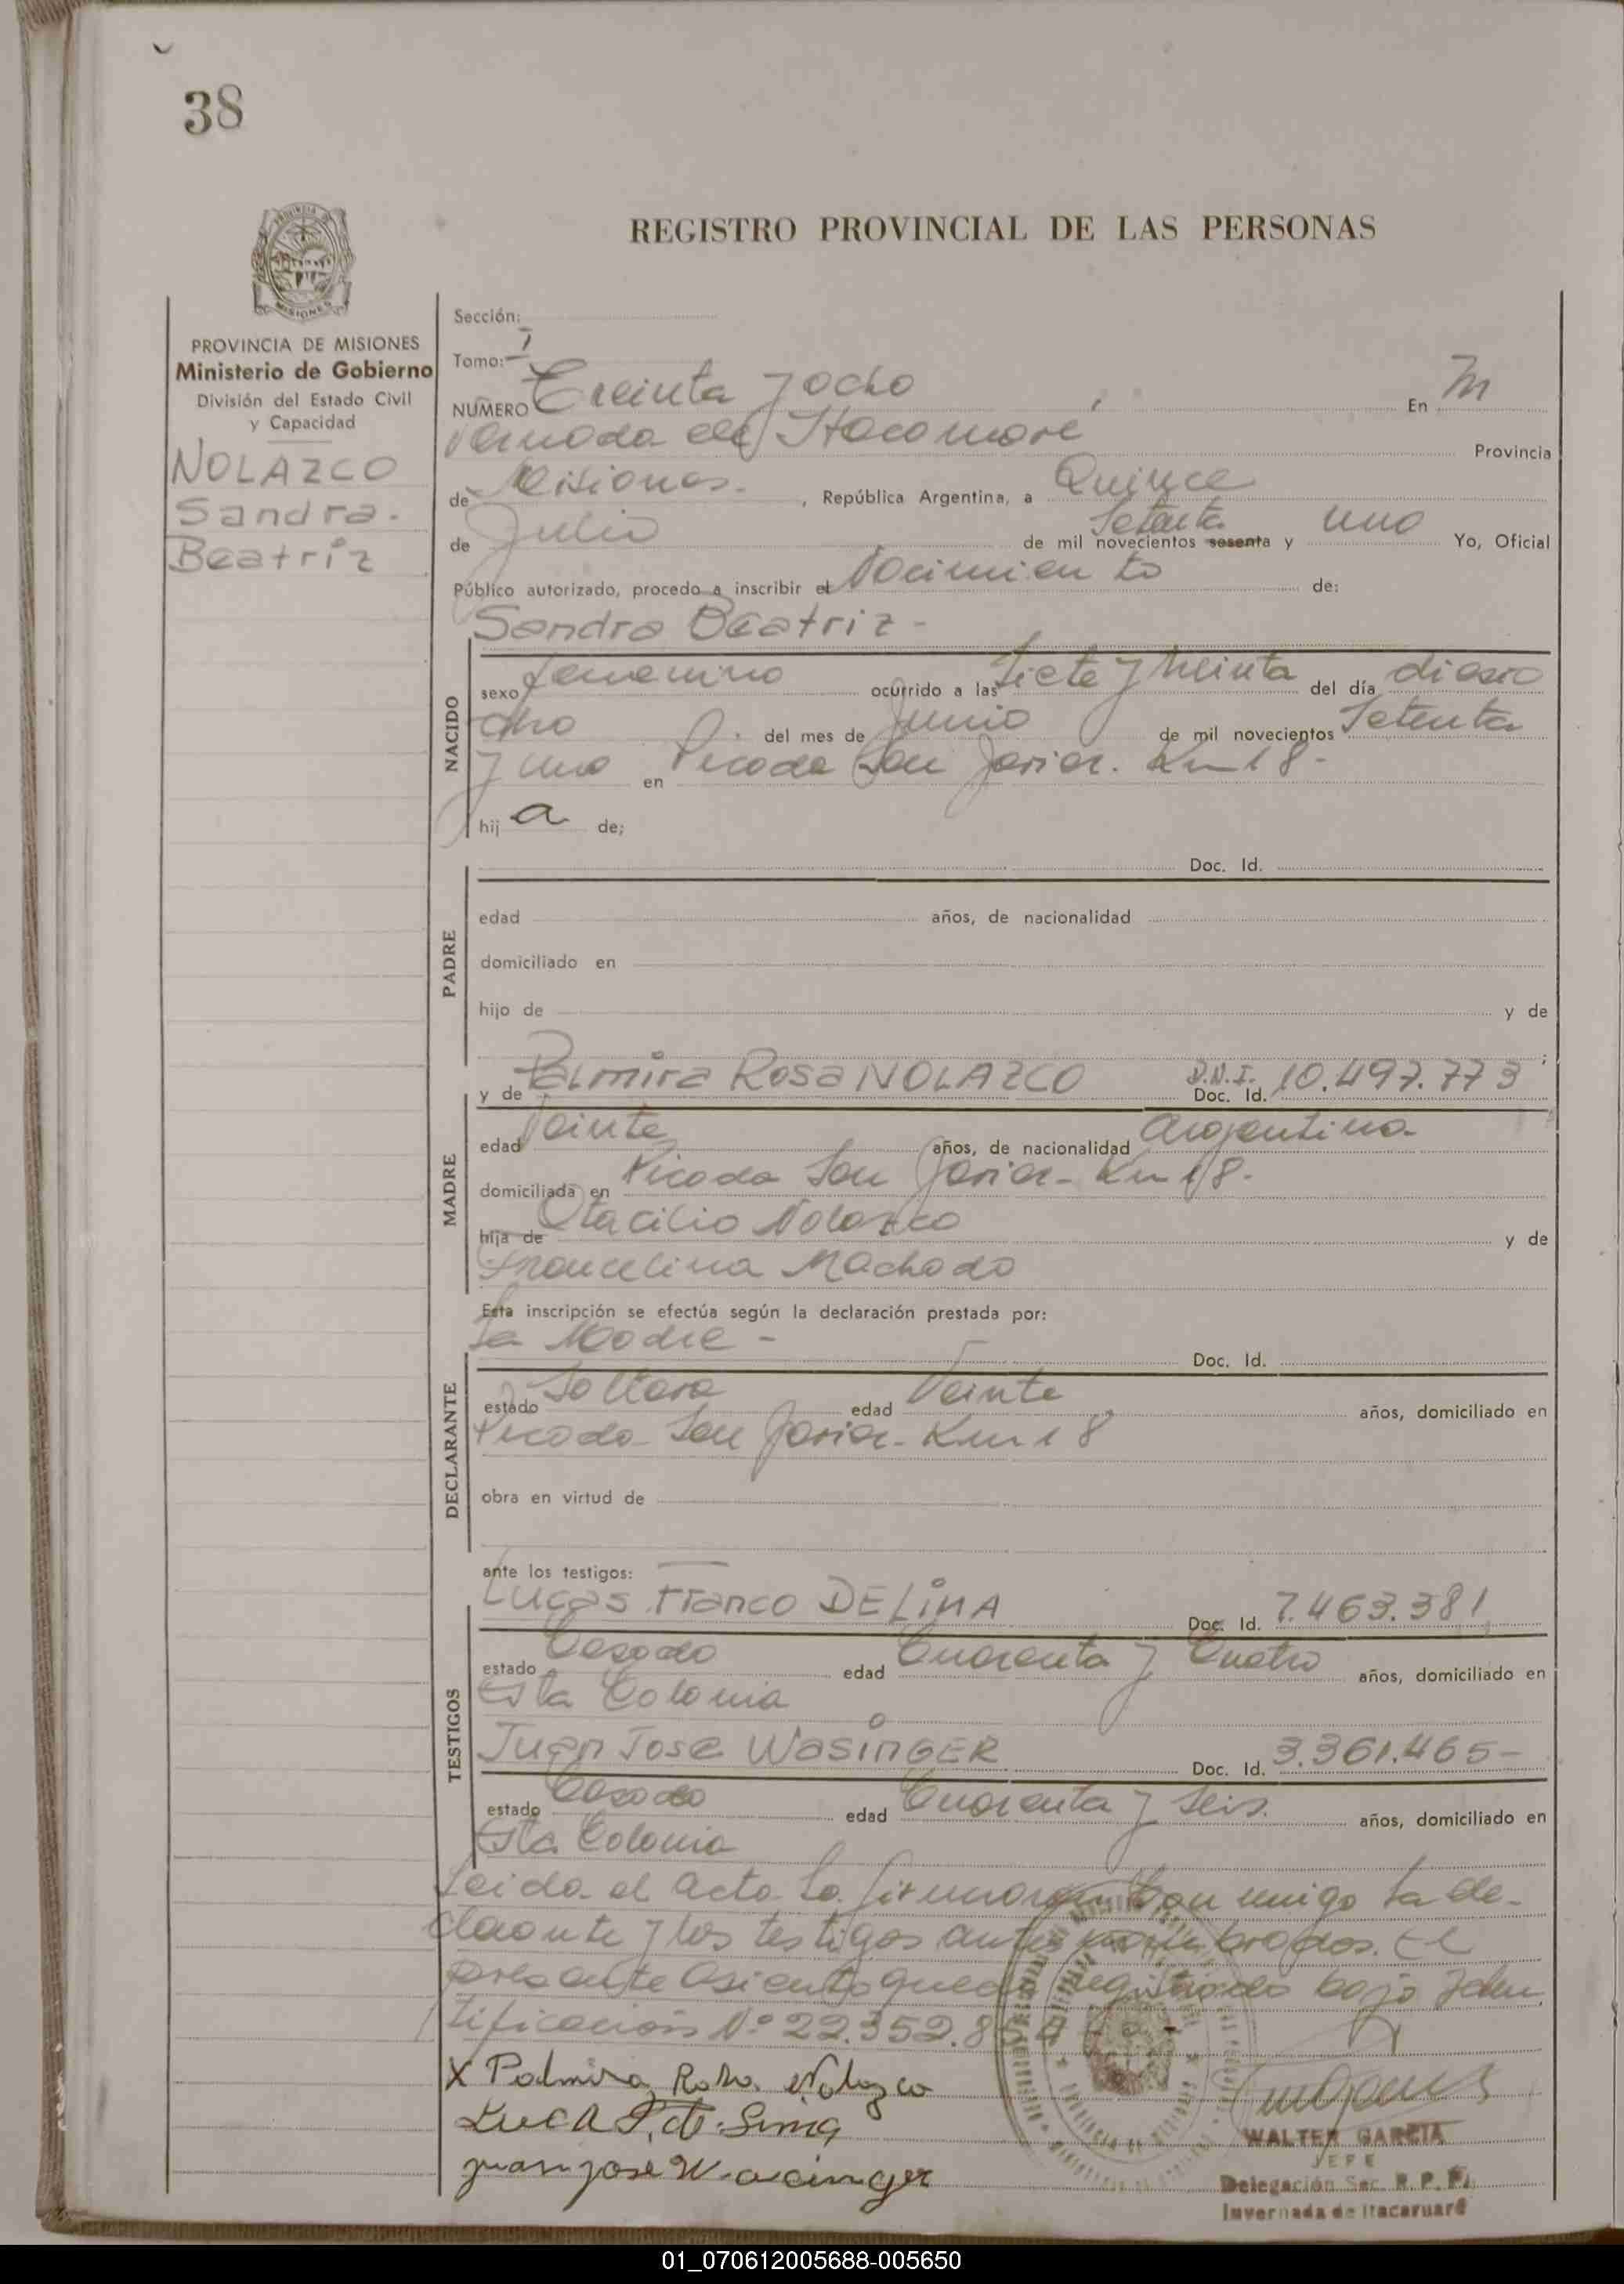 38
REGISTRO PROVINCIAL DE LAS PERSONAS
MISIONES
PROVINCIA DE MISIONES
Ministerio de Gobierno
División del Estado Civil
y Capacidad
NOLAZCO
Sandra.
Beatriz
Sección:
Tomo: I
NÚMERO Treinta y ocho En In
vernada de Itacaruaré Provincia
de Misiones. , República Argentina, a Quince
de Julio de mil novecientos sesenta Setenta y uno Yo, Oficial
Público autorizado, procedo a inscribir el Nacimiento de:
Sandra Beatriz -
NACIDO
sexo femenino ocurrido a las Siete y treinta del día dieció
cho del mes de Junio de mil novecientos Setenta
y uno en Picada San Javier. Km 18-
hij a de;
PADRE
Doc. Id.
edad años, de nacionalidad
domiciliado en
hijo de y de
;
MADRE
y de Palmira Rosa NOLAZCO D.N.I. Doc. Id. 10.497.773
edad Veinte años, de nacionalidad Argentina-
domiciliada en Picada San Javier- Km 18-
hija de Otacilio Nolazco y de
Francelina Machado
Esta inscripción se efectúa según la declaración prestada por:
La Madre -
DECLARANTE
Doc. Id.
estado Soltera edad Veinte años, domiciliado en
Picada San Javier- Km 18
obra en virtud de
ante los testigos:
TESTIGOS
Lucas Franco DELIMA Doc. Id. 7.463.381
estado Casado edad Cuarenta y Cuatro años, domiciliado en
Esta Colonia
Juan Jose WASINGER Doc. Id. 3.361.465-
estado Casado edad Cuarenta y Seis. años, domiciliado en
Esta Colonia
Leida el acta la firmaron con migo la de-
clarante y los testigos antes nombrados. El
presente asiento queda registrado bajo Iden
tificación Nº 22.352.8
X Palmira Rosa Nolazco
Luca F. d. Lima
Juan jose Wacinger
WALTER GARCIA
JEFE
Delegación Sec. R. P. P.
Invernada de Itacaruaré
01_070612005688-005650